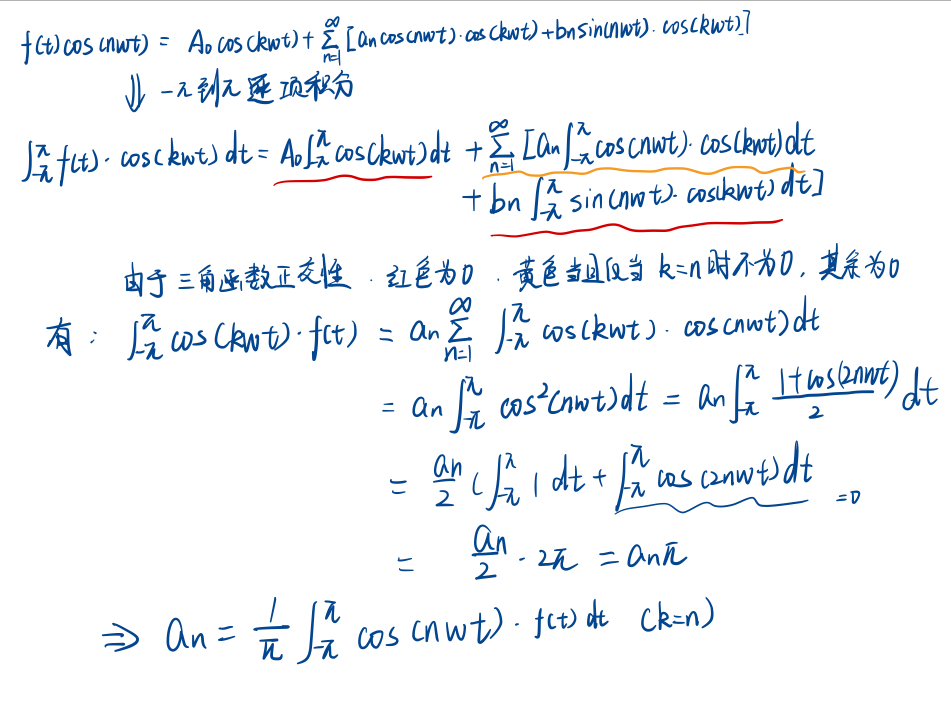 f(t)cos(nwt) = A₀cos(kwt) + ∑_{n=1}^{∞} [aₙcos(nwt)·cos(kwt) + bₙsin(nwt)·cos(kwt)]
⇓ -π到π逐项积分
∫_{-π}^{π} f(t)·cos(kwt)dt = A₀∫_{-π}^{π} cos(kwt)dt + ∑_{n=1}^{∞} [aₙ∫_{-π}^{π} cos(nwt)·cos(kwt)dt
+ bₙ∫_{-π}^{π} sin(nwt)·cos(kwt)dt]
由于三角函数正交性.红色为0.黄色当且仅当k=n时不为0,其余为0
有: ∫_{-π}^{π} cos(kwt)·f(t) = aₙ∑_{n=1}^{∞} ∫_{-π}^{π} cos(kwt)·cos(nwt)dt
= aₙ∫_{-π}^{π} cos²(nwt)dt = aₙ∫_{-π}^{π} (1+cos(2nwt))/2 dt
= aₙ/2 (∫_{-π}^{π} 1dt + ∫_{-π}^{π} cos(2nwt)dt =0
= aₙ/2 · 2π = aₙπ
⇒ aₙ = 1/π ∫_{-π}^{π} cos(nwt)·f(t)dt (k=n)